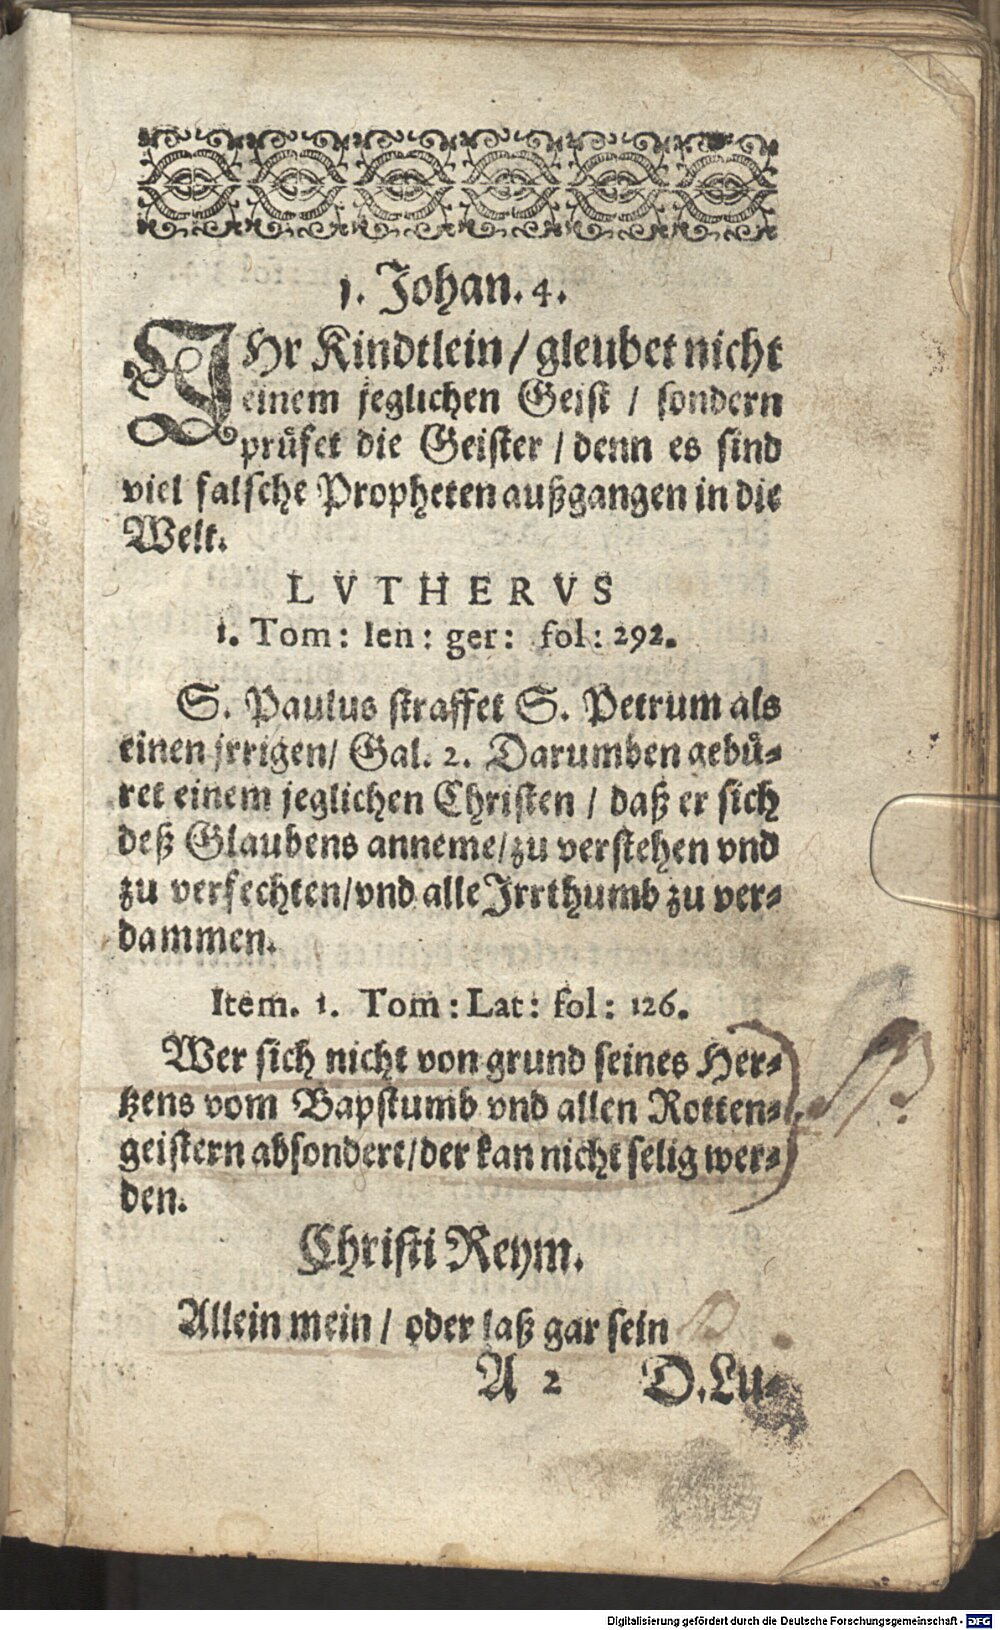 1. Johan. 4.
IHr Kindtlein / gleubet nicht
einem jeglichen Geist / sondern
prüfet die Geister / denn es sind
viel falsche Propheten außgangen in die
Welt.
LVTHERVS
1. Tom: Ien: ger: fol: 292.
S. Paulus straffet S. Petrum als
einen jrrigen / Gal. 2. Darumben gebü-
ret einem jeglichen Christen / daß er sich
deß Glaubens anneme / zu verstehen vnd
zu verfechten / vnd alle Irrthumb zu ver-
dammen.
Item. 1. Tom: Lat: fol: 126.
Wer sich nicht von grund seines Her-
tzens vom Bapstumb vnd allen Rotten-
geistern absondert / der kan nicht selig wer-
den.
Christi Reym.
Allein mein / oder laß gar sein
A 2 D. Lu-
Digitalisierung gefördert durch die Deutsche Forschungsgemeinschaft - DFG